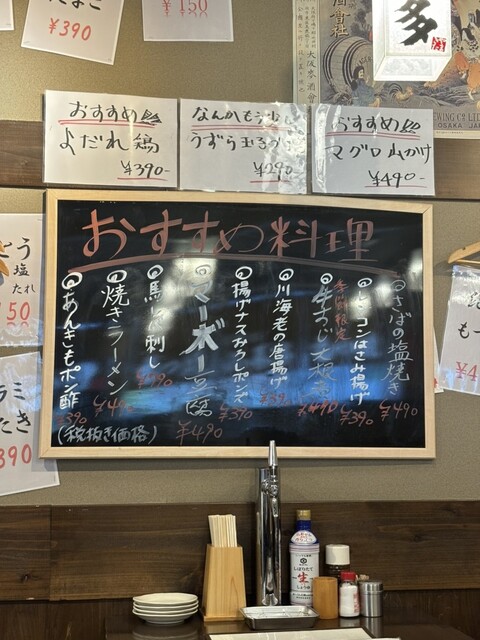 ¥390
¥150
おすすめ
よだれ鶏
¥390-
なんかもう少し
うずら玉
¥290-
おすすめ
マグロ山かけ
¥490-
おすすめ料理
さばの塩焼き
¥490
レンコンはさみ揚げ
¥390
季節限定
牛すじ大根
¥490
川海老の唐揚げ
¥390
揚げナスおろしポンズ
¥390
マーボー豆腐
¥490
馬刺し
¥790
焼きラーメン
¥490
あんきもポン酢
¥390
(税抜き価格)
塩
たれ
150
390
多
大阪麥酒會社
OSAKA JAPAN
生